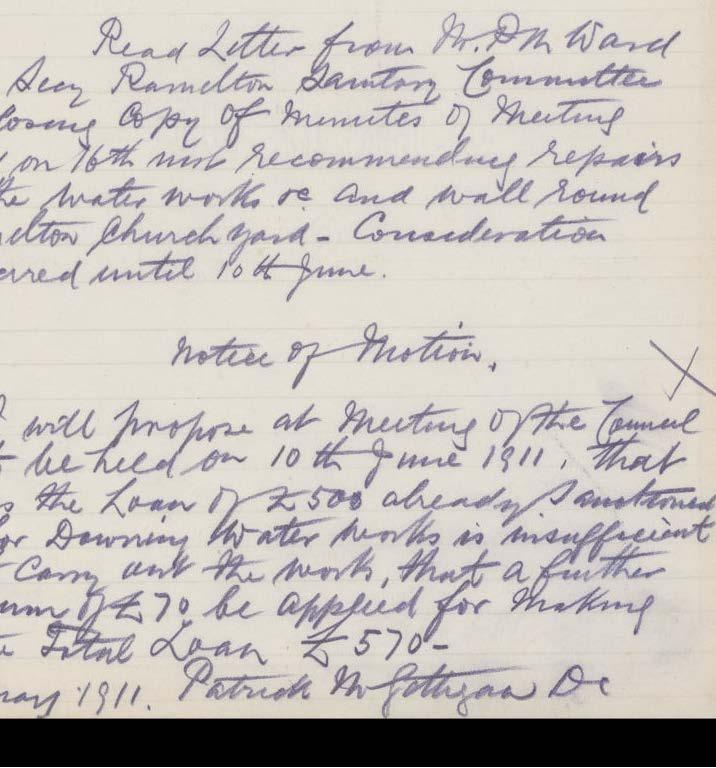 Read Letter from Mr. P M Ward
Secy Ramelton Sanitary Committee
losing Copy of Minutes of Meeting
on 16th inst recommending repairs
he water works &c and wall round
elton Church yard - Consideration
rred until 10th June.
Notice of Motion.
I will propose at Meeting of the Council
be held on 10th June 1911, that
s the Loan of £500 already Sanctioned
or Downing Water Works is insufficient
Carry out the work, that a further
um of £70 be applied for Making
e Total Loan £570-
may 1911. Patrick McGettigan DC